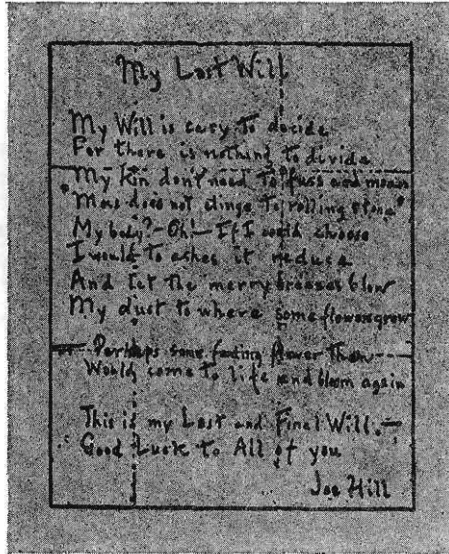 My Last Will
My Will is easy to decide
For there is nothing to divide
My kin don't need to fuss and moan
"Moss does not cling to rolling stone"
My body? - Oh! - If I could choose
I would to ashes it reduce
And let the merry breezes blow
My dust to where some flowers grow
Perhaps some fading flower then
Would come to life and bloom again
This is my Last and Final Will. -
Good Luck to All of you
Joe Hill